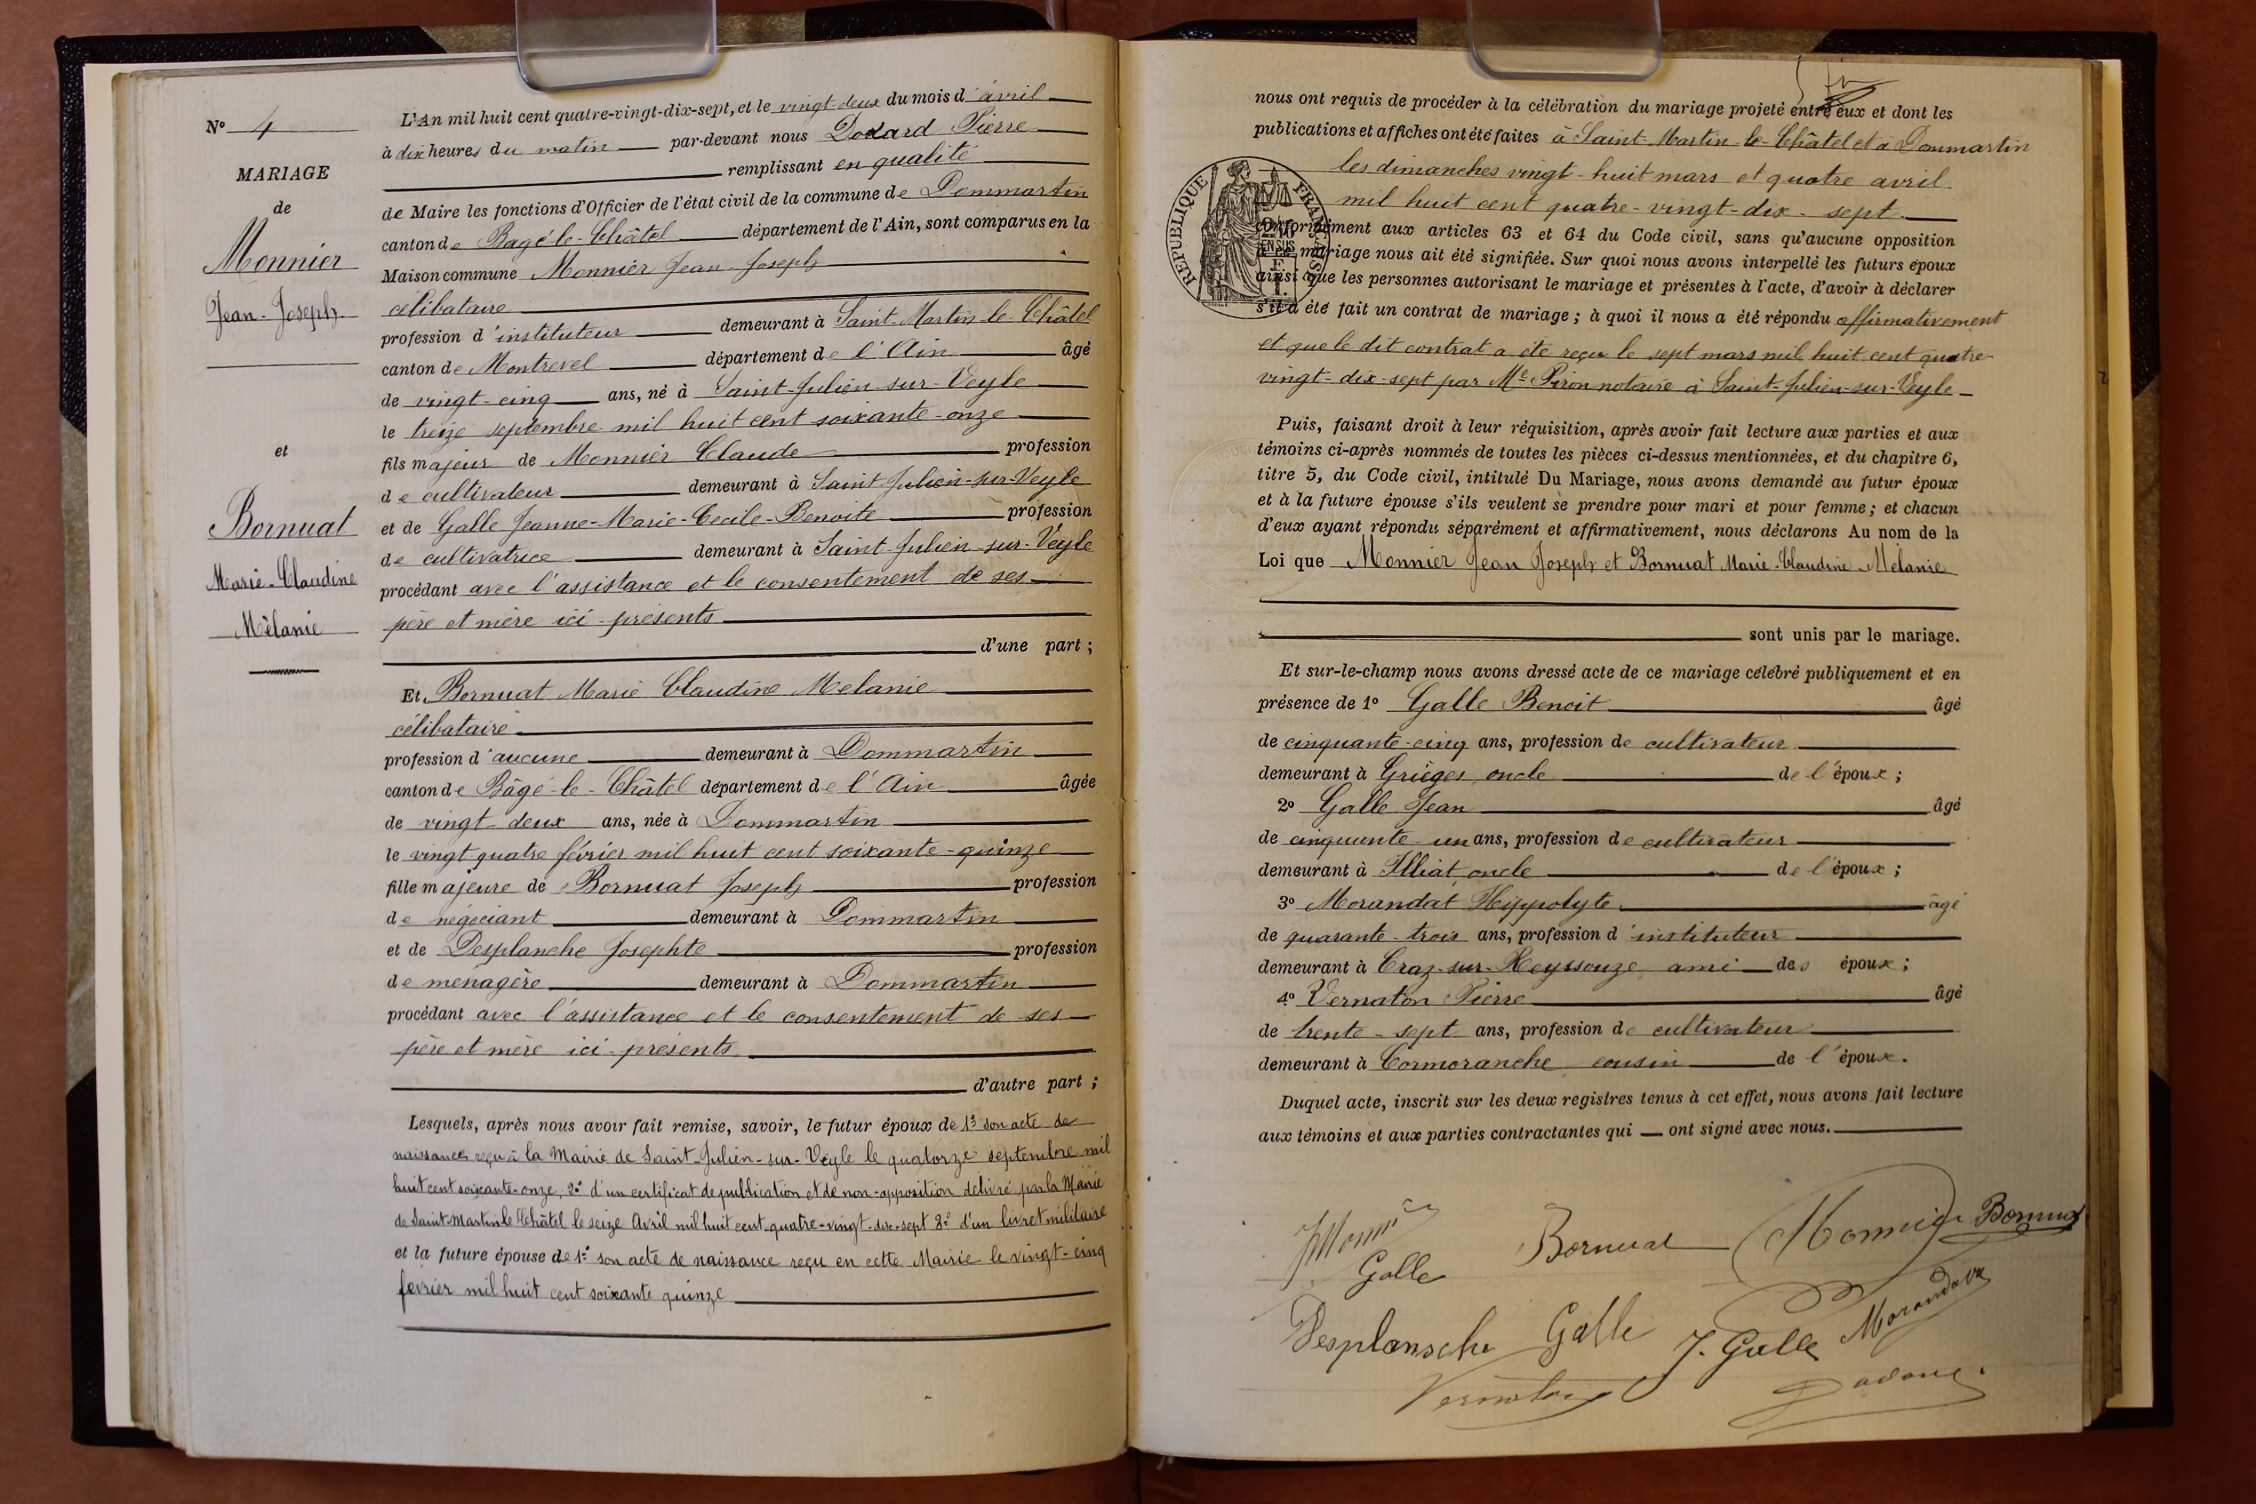 N° 4
MARIAGE
de
Monnier
Jean-Joseph
et
Bornuat
Marie-Claudine
Mélanie
L'An mil huit cent quatre-vingt-dix-sept, et le vingt-deux du mois d'avril
à dix heures du matin par-devant nous Dodard Pierre
remplissant en qualité
de Maire les fonctions d'Officier de l'état civil de la commune de Dommartin
canton de Bagé-le-Châtel département de l'Ain, sont comparus en la
Maison commune Monnier Jean-Joseph
célibataire
profession d'instituteur demeurant à Saint-Martin-le-Châtel
canton de Montrevel département de l'Ain âgé
de vingt-cinq ans, né à Saint-Julien-sur-Veyle
le treize septembre mil huit cent soixante-onze
fils majeur de Monnier Claude profession
de cultivateur demeurant à Saint-Julien-sur-Veyle
et de Galle Jeanne-Marie-Cecile-Benoite profession
de cultivatrice demeurant à Saint-Julien-sur-Veyle
procédant avec l'assistance et le consentement de ses
père et mère ici présents
d'une part ;
Et Bornuat Marie Claudine Melanie
célibataire
profession d'aucune demeurant à Dommartin
canton de Bâgé-le-Châtel département de l'Ain âgée
de vingt-deux ans, née à Dommartin
le vingt quatre février mil huit cent soixante-quinze
fille majeure de Bornuat Joseph profession
de négociant demeurant à Dommartin
et de Desplanche Josephte profession
de ménagère demeurant à Dommartin
procédant avec l'assistance et le consentement de ses
père et mère ici présents
d'autre part ;
Lesquels, après nous avoir fait remise, savoir, le futur époux de 1° son acte de
naissance reçu à la Mairie de Saint-Julien-sur-Veyle le quatorze septembre mil
huit cent soixante-onze, 2° d'un certificat de publication et de non-opposition délivré par la Mairie
de Saint-Martin le Châtel le seize Avril mil huit cent quatre-vingt-dix-sept 3° d'un livret militaire
et la future épouse de 1° son acte de naissance reçu en cette Mairie le vingt-cinq
février mil huit cent soixante quinze
nous ont requis de procéder à la célébration du mariage projeté entre eux et dont les
publications et affiches ont été faites à Saint-Martin-le-Châtel et à Dommartin
les dimanches vingt-huit mars et quatre avril
mil huit cent quatre-vingt-dix-sept
RÉPUBLIQUE FRANÇAISE
conformément aux articles 63 et 64 du Code civil, sans qu'aucune opposition
à ce mariage nous ait été signifiée. Sur quoi nous avons interpellé les futurs époux
ainsi que les personnes autorisant le mariage et présentes à l'acte, d'avoir à déclarer
s'il a été fait un contrat de mariage ; à quoi il nous a été répondu affirmativement
et que le dit contrat a été reçu le sept mars mil huit cent quatre-
vingt-dix-sept par Me Piron notaire à Saint-Julien-sur-Veyle
Puis, faisant droit à leur réquisition, après avoir fait lecture aux parties et aux
témoins ci-après nommés de toutes les pièces ci-dessus mentionnées, et du chapitre 6,
titre 5, du Code civil, intitulé Du Mariage, nous avons demandé au futur époux
et à la future épouse s'ils veulent se prendre pour mari et pour femme ; et chacun
d'eux ayant répondu séparément et affirmativement, nous déclarons Au nom de la
Loi que Monnier Jean Joseph et Bornuat Marie-Claudine Mélanie
sont unis par le mariage.
Et sur-le-champ nous avons dressé acte de ce mariage célébré publiquement et en
présence de 1° Galle Benoit âgé
de cinquante-cinq ans, profession de cultivateur
demeurant à Grièges oncle de l'époux ;
2° Galle Jean âgé
de cinquante-un ans, profession de cultivateur
demeurant à Illiat oncle de l'époux ;
3° Morandat Hippolyte âgé
de quarante-trois ans, profession d'instituteur
demeurant à Craz-sur-Reyssouze ami des époux ;
4° Vernaton Pierre âgé
de trente-sept ans, profession de cultivateur
demeurant à Cormoranche cousin de l'époux.
Duquel acte, inscrit sur les deux registres tenus à cet effet, nous avons fait lecture
aux témoins et aux parties contractantes qui ont signé avec nous.
Bornuat Monnier Bornuat
Galle
Desplansche Galle J. Galle Morandat